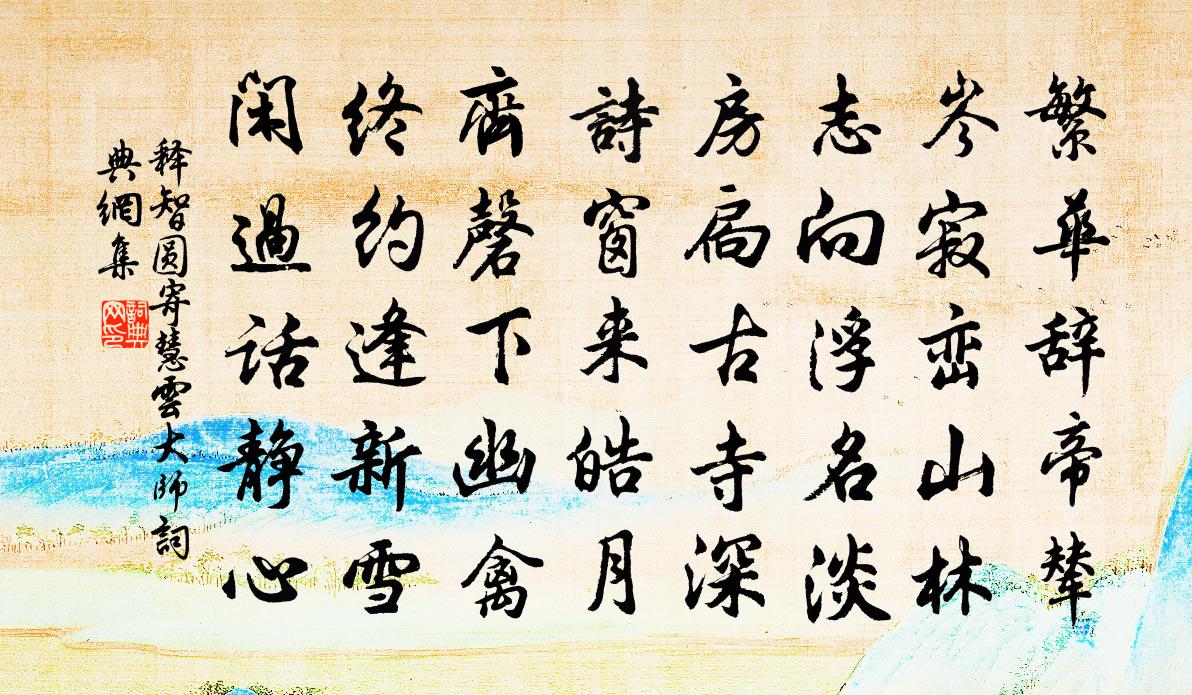 繁華辞帝輦
岑寂峦山林
志向浮名淡
房扃古寺深
詩窗来皓月
齋磬下幽禽
终约逢新雪
闲過话静心
释智圆寄慧雲大師詞
典網集
詞典网印